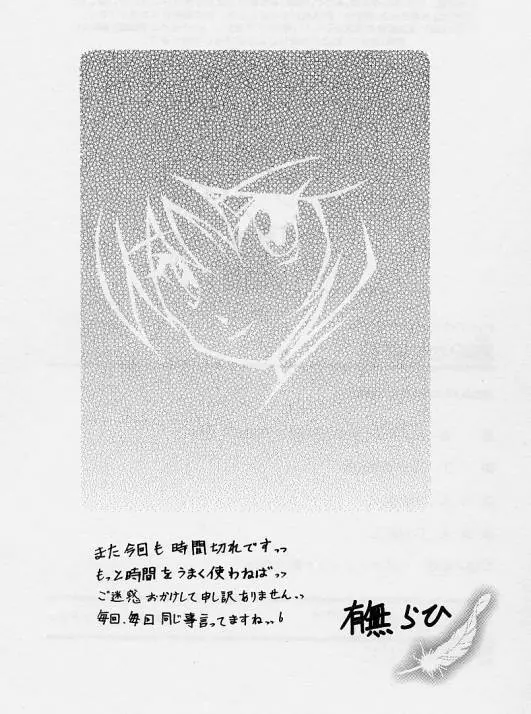 また今回も時間切れですっっ
もっと時間をうまく使わねばっっ
ご迷惑おかけして申し訳ありません、、
毎回、毎回同じ事言ってますねっっ6
有無らひ